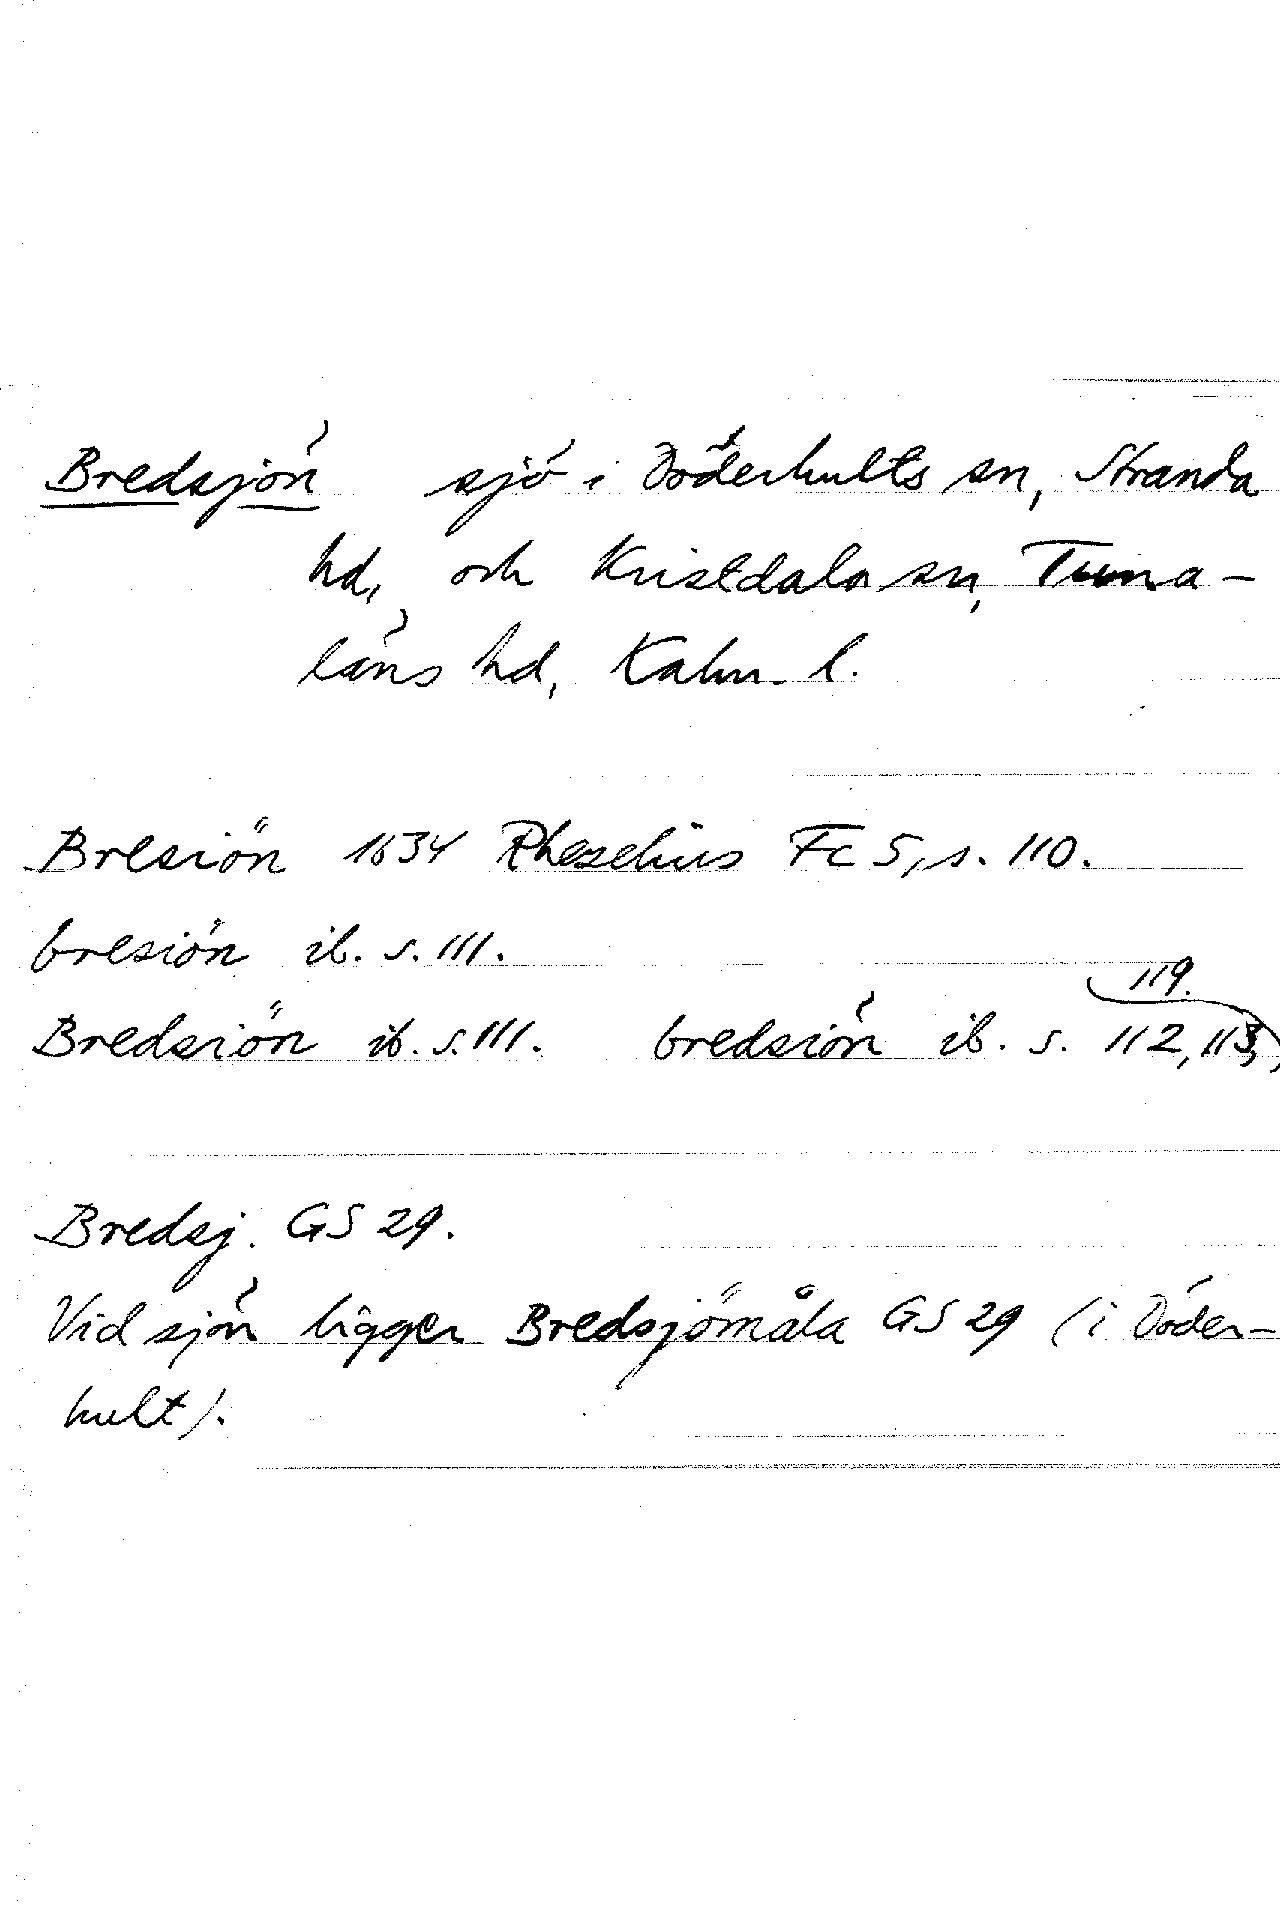 Bredsjön sjö i Döderhults sn, Stranda
hd, och Kristdala sn, Tuna-
läns hd, Kalm. l.
Bresiön 1634 Rhezelius Fc 5, s. 110.
bresiön ib. s. 111.
Bredsiön ib. s. 111. bredsiön ib. s. 112, 113, 119.
Bredsj. GS 29.
Vid sjön ligger Bredsjömåla GS 29 (i Döder-
hult).